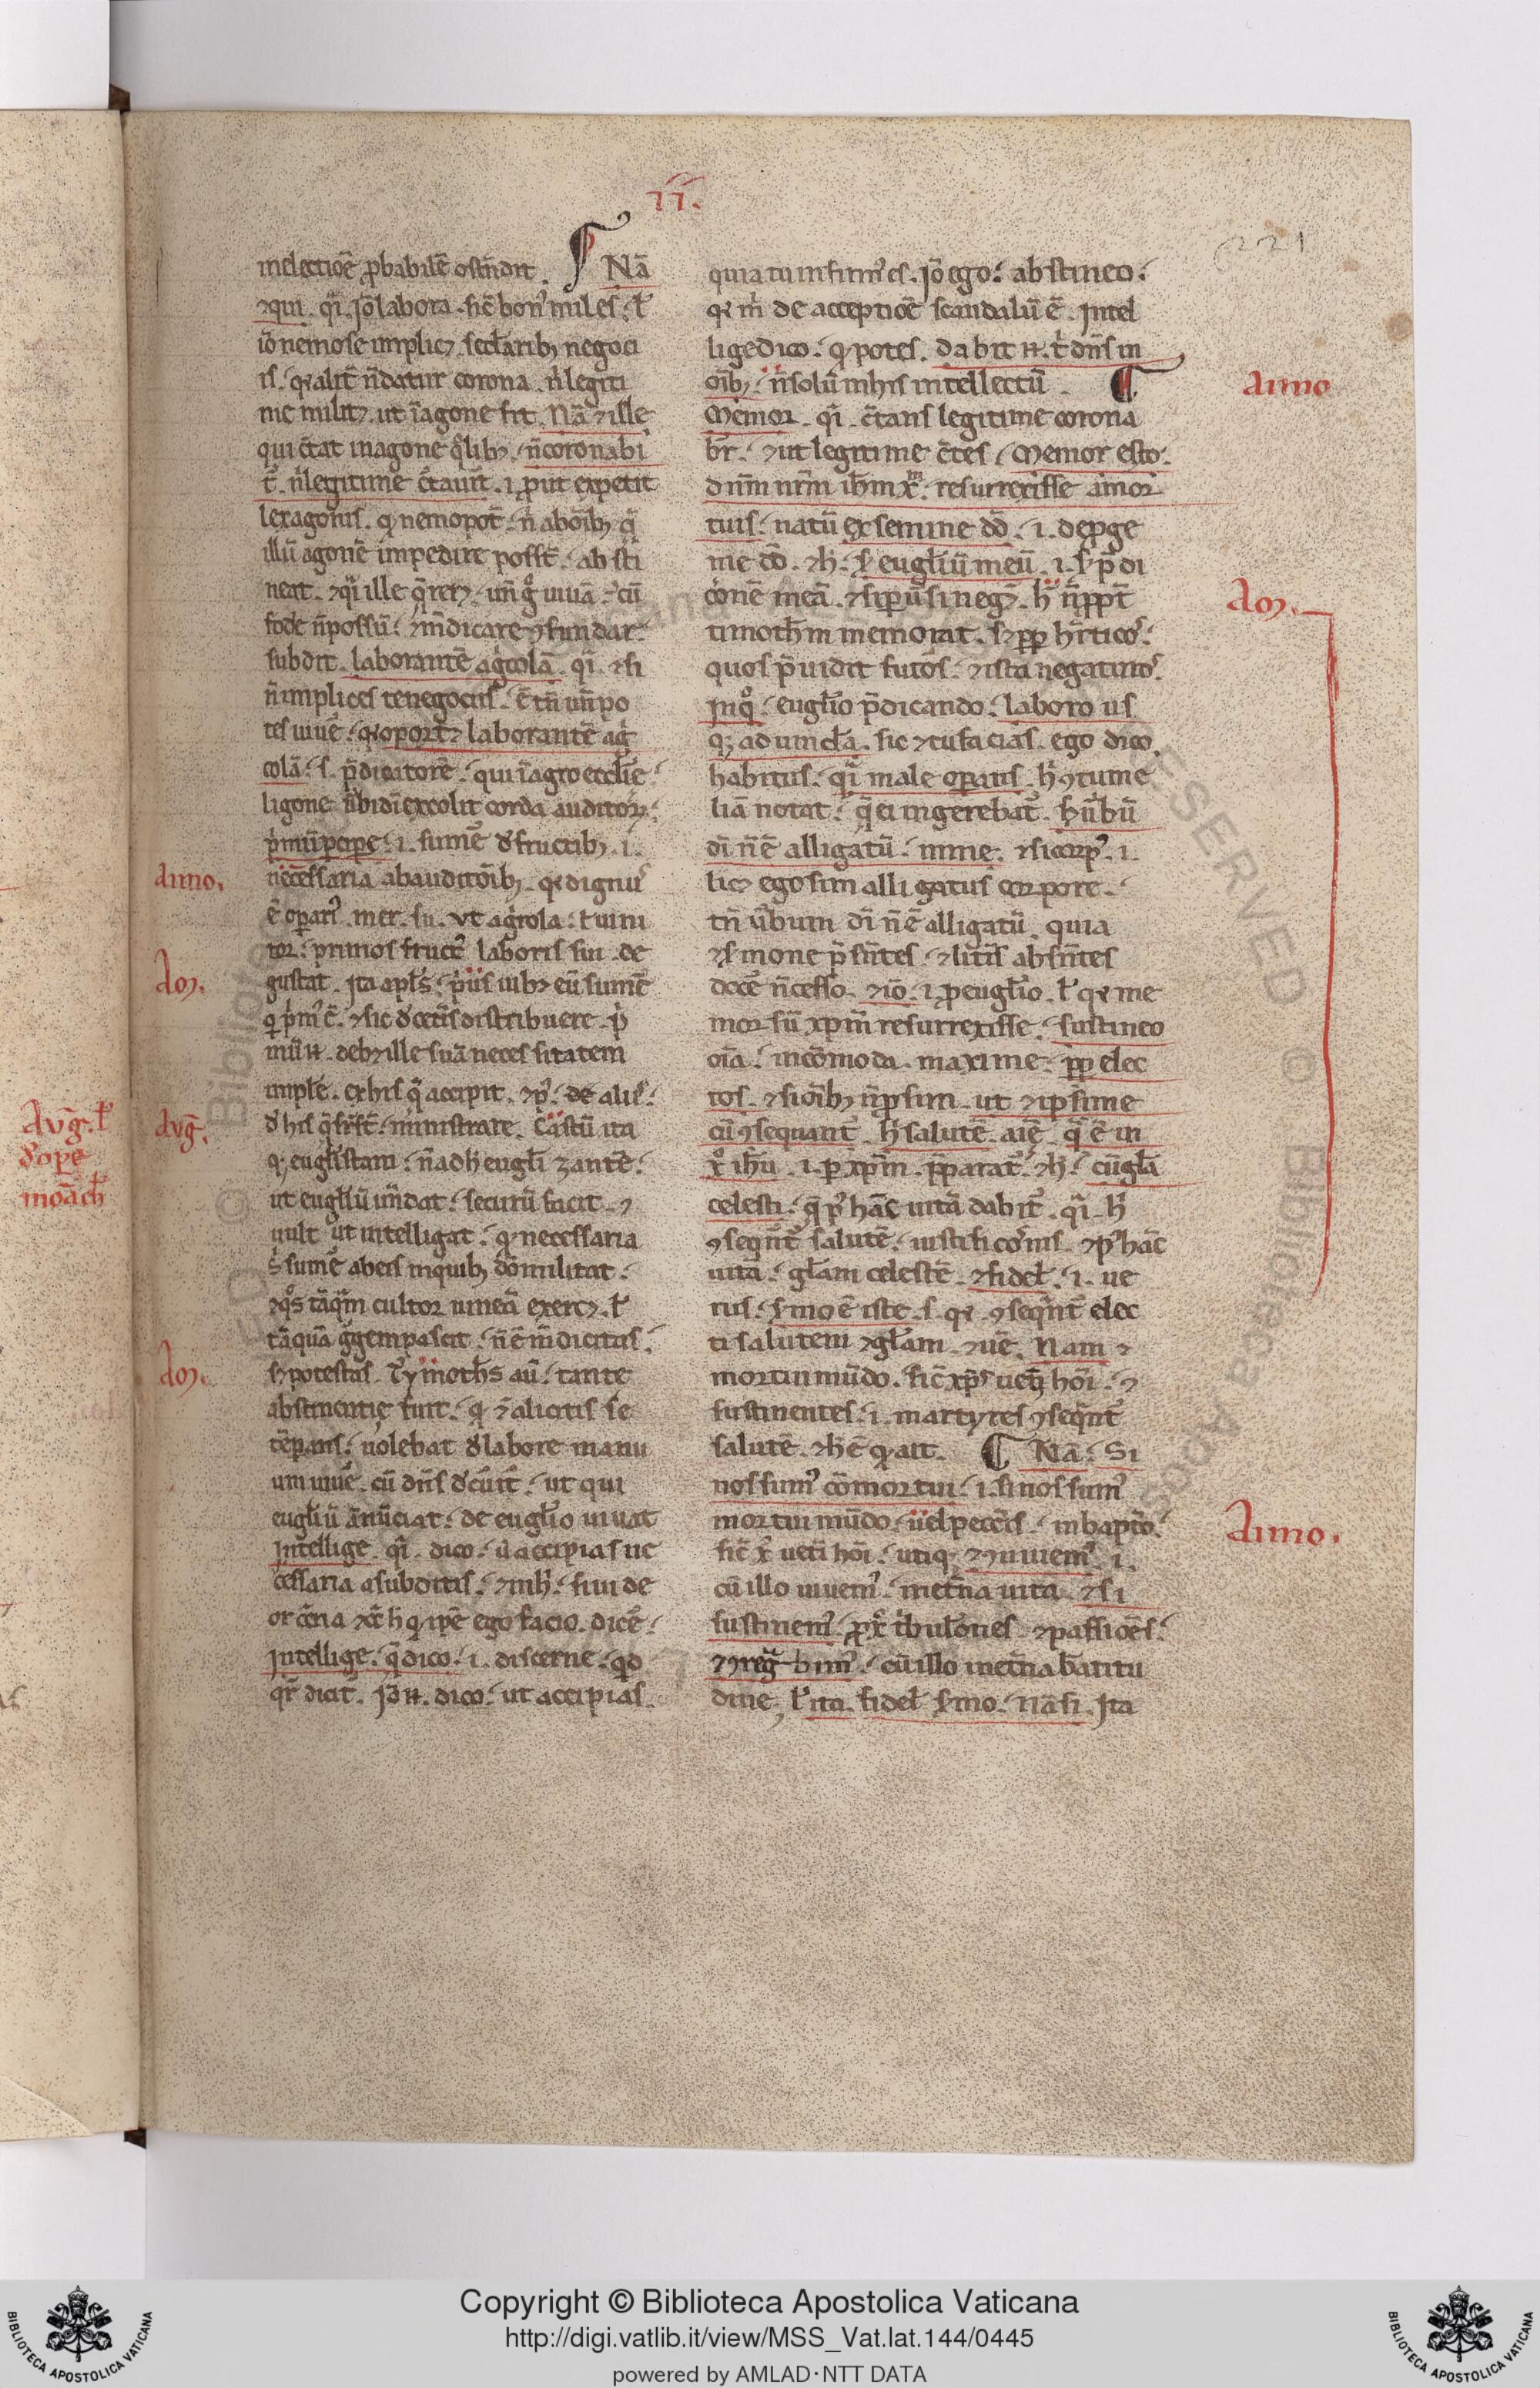 .II.
221
in electiōe ꝓbabilē ostn̄dit. Nā
⁊ qui. qͥ. Jō labora. sic̄ bonꝰ miles. ł
iō nemo se implicꝫ. secl̄aribꝫ negoci
is. qꝛ alit̄ n̄ datur corona. nͥ legiti
me militꝫ. ut ī agone fit. Nā ⁊ ille
qui c̄tat in agone qͥlibꝫ. n̄ coronabi
t̄. nͥ legitime c̄tauīt. i. ꝓut expetit
lex agonis. ꝙ nemo pot̄. nͥ ab oīb; q̄
illū agonē impedire poss̄t. absti
neat. ⁊ qͥ ille q̄rerꝫ. un̄ gͦ uiuā. cū
fode n̄ possū. ⁊ m̄dicare ꝯfundar.
subdit. laborantē agͥcolā. qͥ. ⁊ si
n̄ implices te negociis. t̄n un̄ po
tes uiuē. qꝛ oportꝫ laborantē agͥ
colā. s. p̄dicatorē. qui ī agro eccl̄ie
ligone ūbi dī excolit corda auditoꝝ.
pͥmū ꝑcipe. i. sumē d̄ fructibꝫ. i.
necessaria ab auditōibꝫ. qꝛ dignꝰ
ē oꝑariꝰ mer. su. Vt agͥcola. ł uini
tor. primos fructꝰ laboris sui de
gustat. Ita apl̄s. pͥus iubꝫ eū sumē
implē. ex his q̄ accipit. ⁊ pꝰ. de aliis.
ut eugl̄iū un̄dat. securū facit. ⁊
uult ut intelligat. ꝙ necessaria
sͥ sumē ab eis in quibꝫ dō militat.
⁊ qͦs tāqͣm cultor uineā exercꝫ. ł
tāquā gͣgem pascit. n̄ ē m̄dicitas.
sꝫ potestas. Tymoth̄s aū. tante
abstinentię fuit. ꝙ
nolebat d̄ labore manu
um uiuē. cū dn̄s
ut qui
eugl̄iū ānūciat. de eugl̄io uiuat
Intellige. qͥ. dico. ū accipias ne
cessaria a subditis.
Intellige. q̄ dico. i. discerne. qͦd
qͬ dicit̄. Iō n̄. dico. ut accipias.
quia tu infirmꝰ es. Jō ego. abstineo.
qꝛ m̄ de acceptiōe scandalū ē. Intel
lige dico. ꝙ potes. dabit n̄. t̄ dn̄s in
oīb;. n̄ solū in his intellectū.
Memor. qͥ. c̄tans legitime corona
br̄. ⁊ ut legitime c̄tes. Memor esto.
dn̄m nr̄m ih̄m xͫ. resurrexisse a mor
tuis. natū ex semine dd̄. i. de ꝓge
nie dd̄. ⁊ h̄. s̄ eugl̄iū meū. i. s̄ p̄di
timoth̄m memorat. sꝫ ꝓp̄ h̄ticoˢ.
quos p̄uidit futōs. ⁊ ista negatuˢ.
In qͦ. eugl̄io p̄dicando. laboro us
qꝫ ad uincl̄a. sic ⁊ tu facias. ego dico
habitus. qͥ male oꝑans. h̄ ꝯtume
liā notat. q̄ ei ingerebat̄. sꝫ ūbū
dī n̄ ē alligatū. in me. ⁊ si corpꝰ. i.
licꝫ ego sim alligatus corpore.
tn̄ ūbum dī n̄ ē alligatū. quia
⁊ s̄mone p̄sn̄tes. ⁊ litt̄is absn̄tes
docē n̄ cesso. ⁊ iō. i. ꝓ eugl̄io. ł qꝛ me
mor sū xp̄m resurrexisse. sustineo
oīa. incōmoda. maxime. ꝓp̄ elec
tos. ⁊ si oīb; n̄ ꝓsim. ut ⁊ ip̄si me
cū ꝯsequant̄. h̄ salutē. aīe. q̄ ē in
x̄ ih̄u. i. ꝑ xp̄m. p̄parat̄. ⁊ h̄. cū gl̄a
celesti. q̄ pꝰ hāc uitā dabit̄. qͥ. h̄
ꝯseqn̄t̄ salutē. iustificōnis. ⁊ pꝰ hāc
uitā. gl̄am celestē. ⁊ fidel̄. i. ue
rus. s̄mo ē iste. s. qꝛ ꝯseqn̄t̄ elec
ti salutem ⁊ gl̄am. ⁊ uē. Nam ⁊
mortui mūdo. sic̄ xp̄s uet̄i hōi. ⁊
sustinentes. i. martyres ꝯseqn̄t̄
salutē. ⁊ h̄ ē ꝙ ait. Nā. Si
nos sumꝰ cōmortui. i. si nos sumꝰ
mortui mūdo. uel pecc̄is. in bapt̄o.
sic̄ x̄ uet̄i hōi. utiqꝫ ⁊ ꝯuiuemꝰ. i.
cū illo uiuemꝰ. in et̄na uita. ⁊ si
sustinemꝰ. ꝓ x̄ t̄bul̄ones. ⁊ passiōes.
⁊ ꝯreg̃bimꝰ. cū illo in et̄na beatitu
dine, ł ita. fidel̄ s̄mo. nā si. Ita
Aimo.
Aoꝫ.
Aug̃.
Aoꝫ.
Aimo
Aoꝫ.
Aimo.
Aug̃. ł
d̄ oꝑe
moāch̄
Copyright © Biblioteca Apostolica Vaticana
http://digi.vatlib.it/view/MSS_Vat.lat.144/0445
powered by AMLAD·NTT DATA
BIBLIOTECA APOSTOLICA VATICANA
BIBLIOTECA APOSTOLICA VATICANA